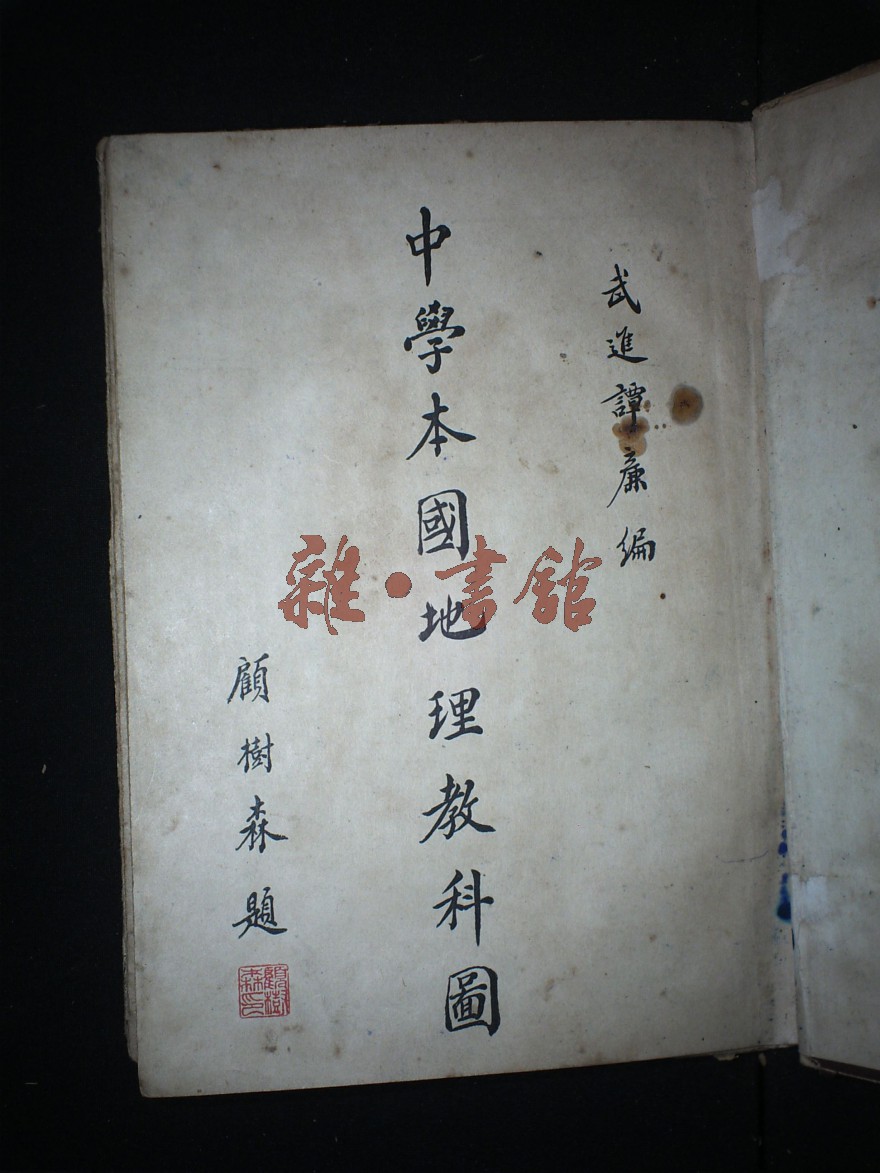 武進譚廉編
中學本國地理教科圖
顧樹森題
顧樹森印
雜·書館